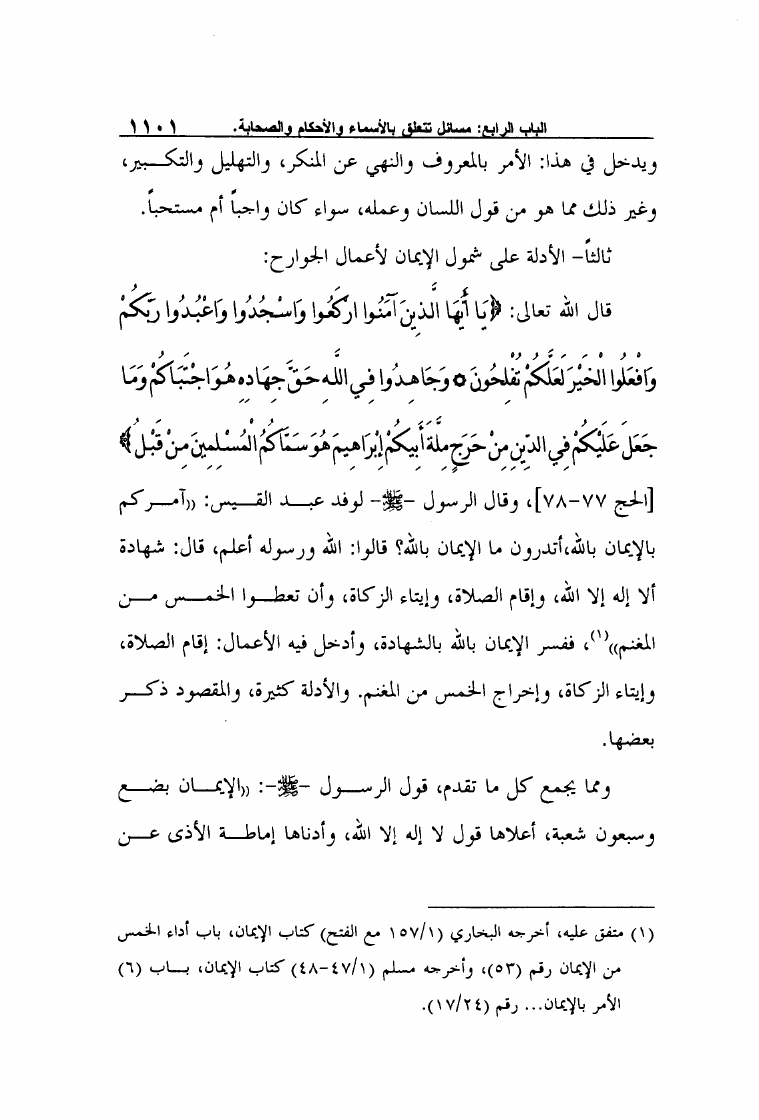 الباب الرابع: مسائل تتعلق بالأسماء والأحكام والصحابة. ١١٠١
ويدخل في هذا: الأمر بالمعروف والنهي عن المنكر، والتهليل والتكـــبير،
وغير ذلك مما هو من قول اللسان وعمله، سواء كان واجباً أم مستحباً.
ثالثاً- الأدلة على شمول الإيمان لأعمال الجوارح:
قال الله تعالى: ﴿يَا أَيُّهَا الَّذِينَ آمَنُوا ارْكَعُوا وَاسْجُدُوا وَاعْبُدُوا رَبَّكُمْ
وَافْعَلُوا الْخَيْرَ لَعَلَّكُمْ تُفْلِحُونَ ۝ وَجَاهِدُوا فِي اللَّهِ حَقَّ جِهَادِهِ هُوَ اجْتَبَاكُمْ وَمَا
جَعَلَ عَلَيْكُمْ فِي الدِّينِ مِنْ حَرَجٍ مِلَّةَ أَبِيكُمْ إِبْرَاهِيمَ هُوَ سَمَّاكُمُ الْمُسْلِمِينَ مِنْ قَبْلُ﴾
[الحج ٧٧-٧٨]، وقال الرسول -ﷺ- لوفد عبـــد القـــيس: ((آمـــركم
بالإيمان بالله،أتدرون ما الإيمان بالله؟ قالوا: الله ورسوله أعلم، قال: شهادة
ألا إله إلا الله، وإقام الصلاة، وإيتاء الزكاة، وأن تعطـــوا الخمـــس مـــن
المغنم))(١)، ففسر الإيمان بالله بالشهادة، وأدخل فيه الأعمال: إقام الصلاة،
وإيتاء الزكاة، وإخراج الخمس من المغنم. والأدلة كثيرة، والمقصود ذكـــر
بعضها.
ومما يجمع كل ما تقدم، قول الرســـول -ﷺ-: ((الإيمـــان بضـــع
وسبعون شعبة، أعلاها قول لا إله إلا الله، وأدناها إماطـــة الأذى عـــن
(١) متفق عليه، أخرجه البخاري (١٥٧/١ مع الفتح) كتاب الإيمان، باب أداء الخمس
من الإيمان رقم (٥٣)، وأخرجه مسلم (٤٧/١-٤٨) كتاب الإيمان، بـــاب (٦)
الأمر بالإيمان... رقم (١٧/٢٤).